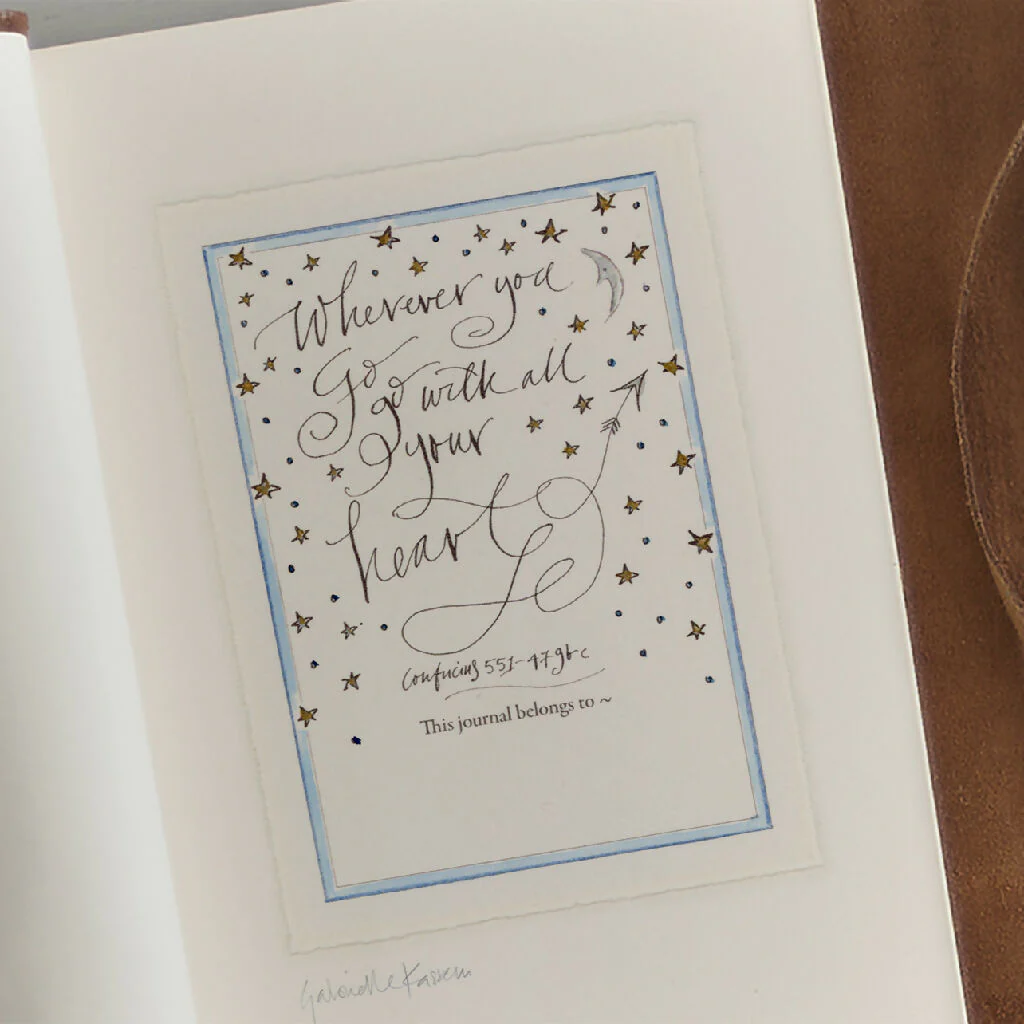 Wherever you
Go
go with all
your
heart
Confucius 551-479bc
This journal belongs to ~
Gabrielle